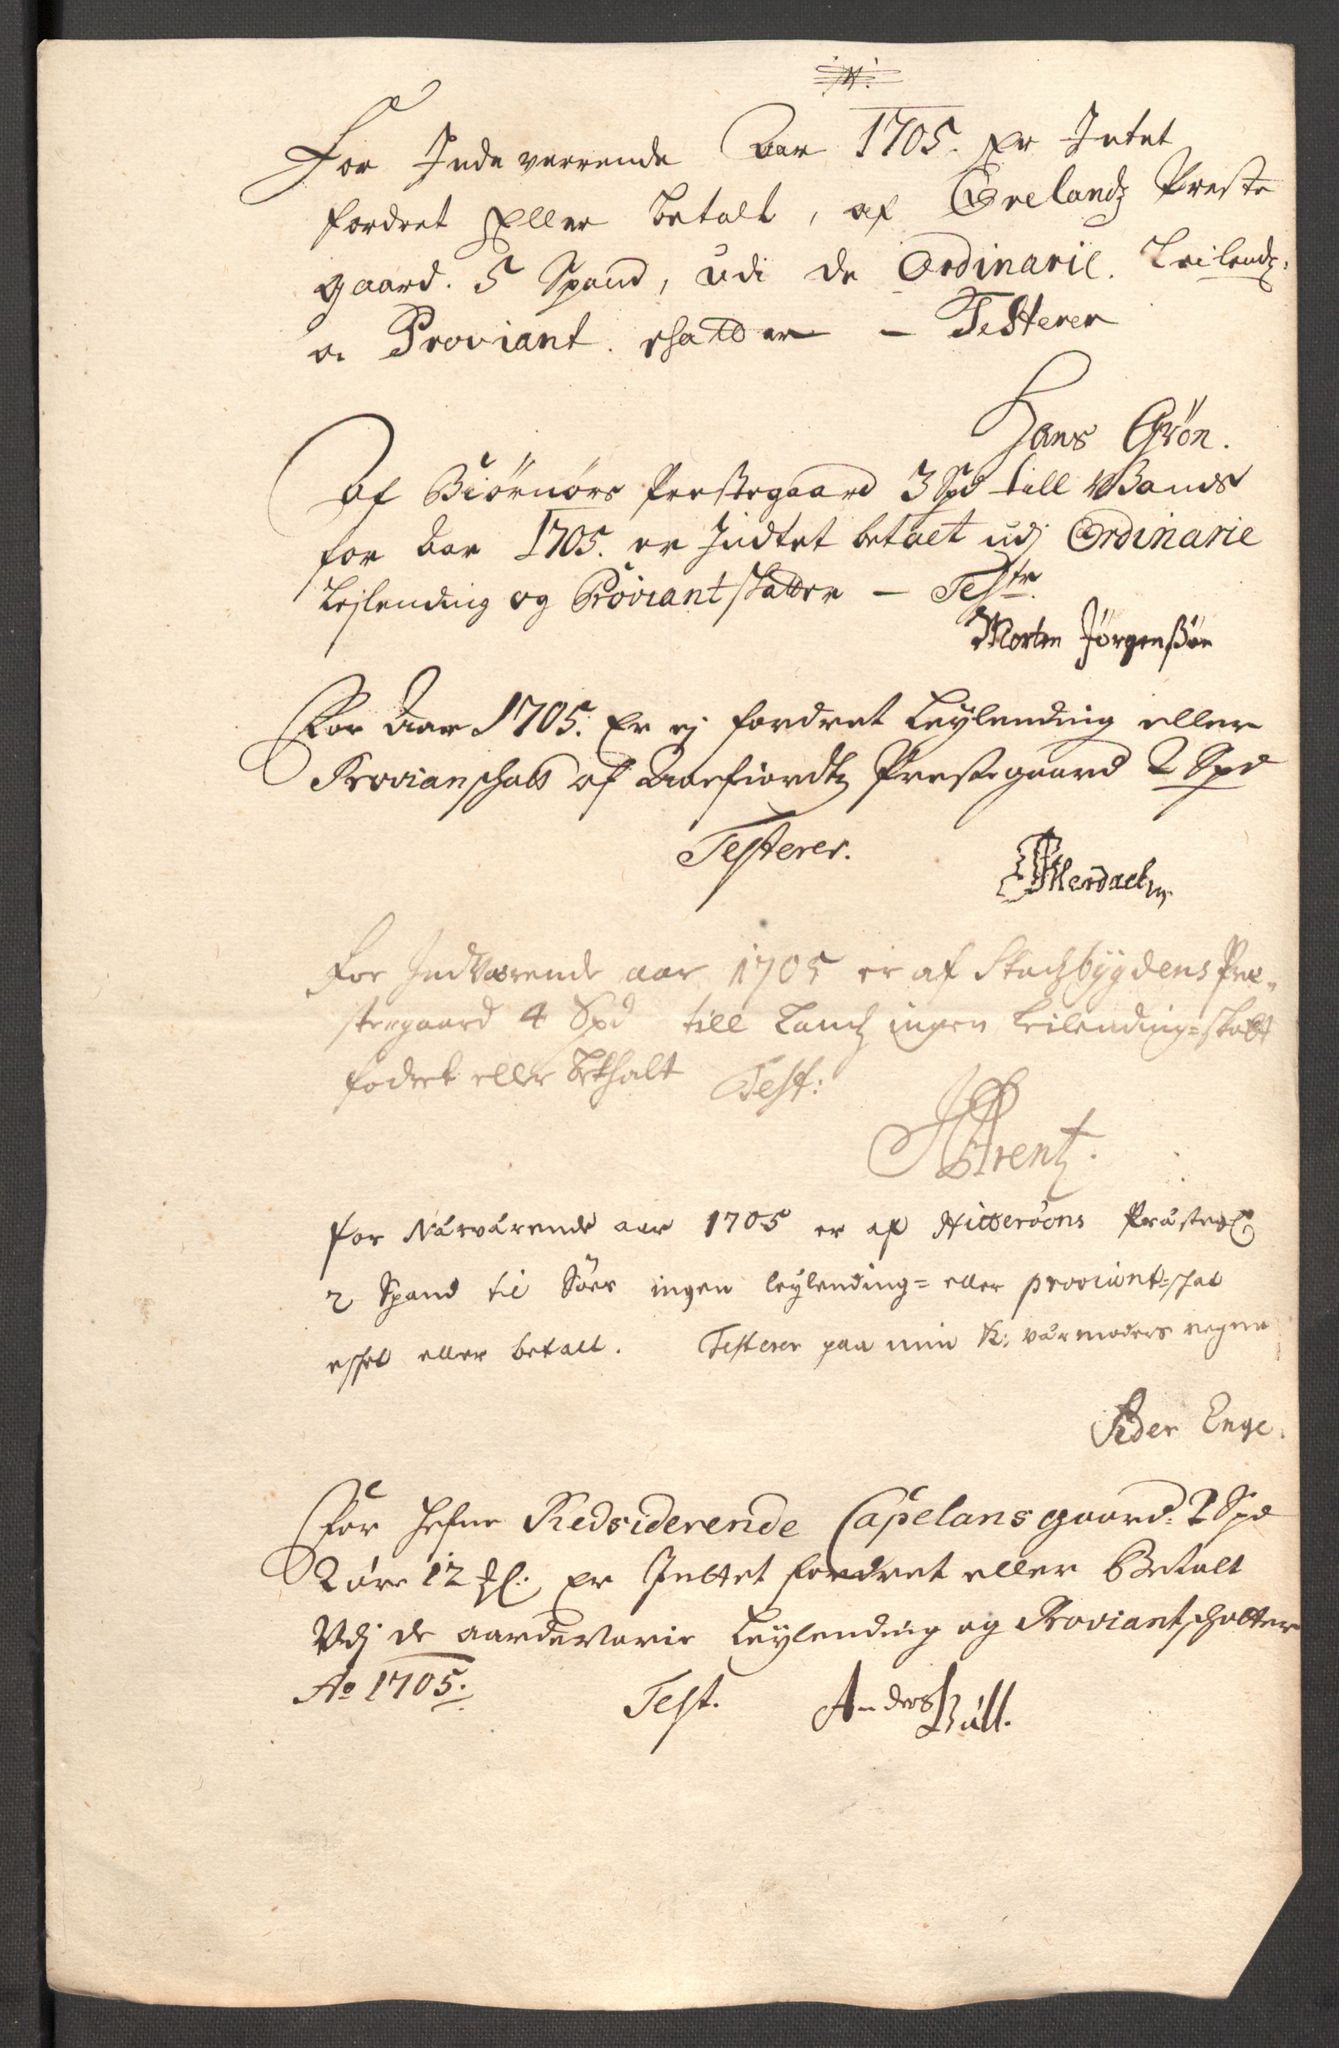 N.
For Inde verrende Aar 1705. Er Intet
fordret Eller betalt, af Ørelandz Preste
gaard. 5 Spand, Udi de Ordinarie. Leilendz:
oc Proviant. schatter – Testerer
Hans Grøn.
Af Biørnørs Prestegaard 3 Spd till Bands
for Aar 1705. er Indtet betalt udj Ordinarie
Lejlending og Proviantskatter – Testr.
Morten Jørgenßøn
For Aar 1705. Er ej fordret Leylending eller
Provianschatt af Aaefiordtz Prestegaard 2 Spd
Testerer.
For Indværende aar 1705 er af Stadzbygdens Præ-
stegaard 4 Spd till Landz ingen Leilending=skatt
fodret eller betalt Test:
Arentz.
for Nærværende aar 1705 er af Hitterøens Præsteb:
2 Spand til Søes ingen leylending= eller proviant=schat
esket eller betalt. Testerer paa min K: værmoders vegne
Peder Enge.
For Hefne Redsiderende Capelans gaard. 2 Spd
2 øre 12 ƺl: Er Inttet fordret eller Betalt
Udj de aardevarie Leylending og Proviantschatter
Ao 1705. Test. Anders Büll.